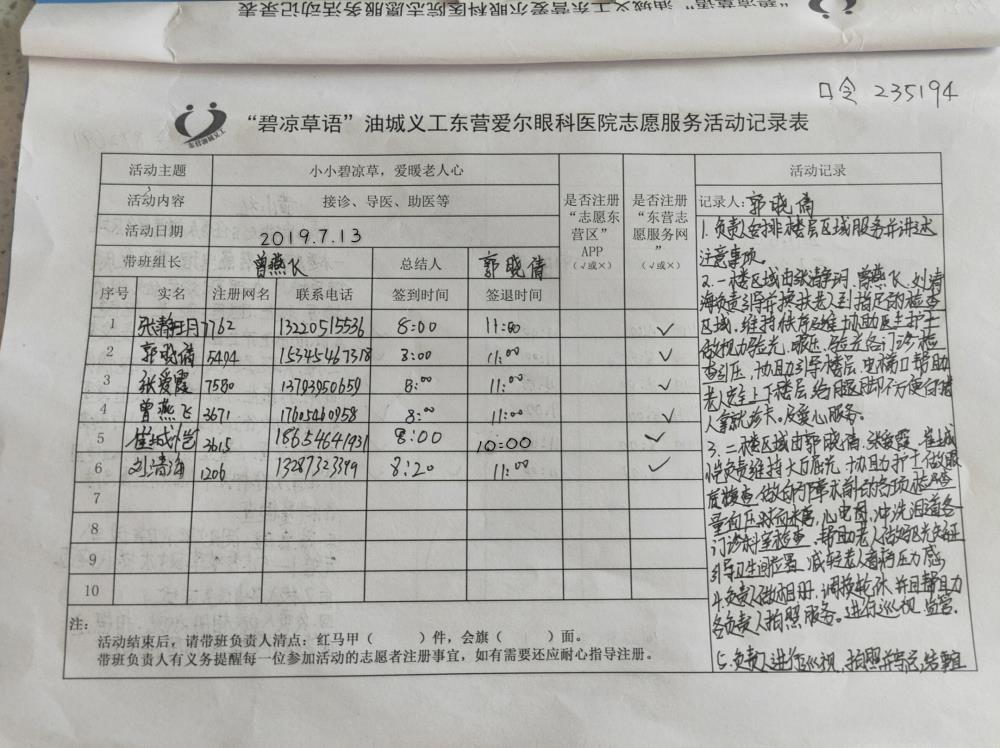 “碧凉草语”油城义工东营爱尔眼科医院志愿服务活动记录表
口令 235194
东营油城义工
“碧凉草语”油城义工东营爱尔眼科医院志愿服务活动记录表
活动主题 小小碧凉草，爱暖老人心
活动内容 接诊、导医、助医等
活动日期 2019.7.13
带班组长 曾燕飞 总结人 郭晓倩
是否注册“志愿东营区”APP（√或×）
是否注册“东营志愿服务网”（√或×）
序号 实名 注册网名 联系电话 签到时间 签退时间
1 张静玥 7762 13220515536 8:00 11:00 √
2 郭晓倩 5494 15345467518 8:00 11:00 √
3 张爱霞 7580 13793950659 8:00 11:00 √
4 曾燕飞 3671 17605460958 8:00 11:00 √
5 崔城 3615 18654641931 8:00 10:00 √
6 刘清海 1206 13287323399 8:20 11:00 √
7
8
9
10
注：
活动结束后，请带班负责人清点：红马甲（ ）件，会旗（ ）面。
带班负责人有义务提醒每一位参加活动的志愿者注册事宜，如有需要还应耐心指导注册。
活动记录
记录人：郭晓倩
1.负责安排楼层区域服务并讲述
注意事项。
2.一楼区域由张静玥、曾燕飞、刘清
海负责引导并搀扶老人到指定的检查
区域，维持秩序 协助医生护士
做视力验光、眼压、验光各门诊检
查 ，协助引导楼层，电梯口帮助
老人安全上下楼层，给 不方便的老
人拿就诊卡。及爱心服务。
3.二楼区域由郭晓倩、张爱霞、崔城
负责维持大厅 ，协助护士做眼
底检查，做白内障术前的各项检查
量血压 ，心电图，冲洗泪道各
门诊科室检查，帮助老人
引导卫生间位置，减轻老人 压力感
4.负责人做相册，调换 并且帮助
各负责人拍照服务。进行巡视，监管。
5.负责人进行巡视，拍照并 结 事宜